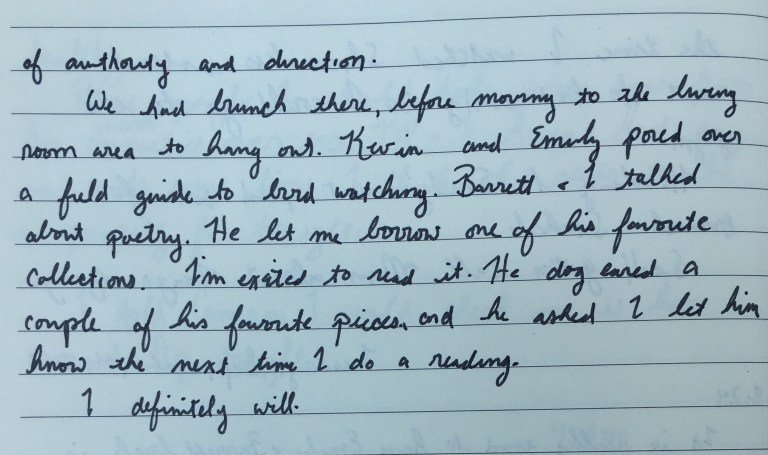 of authority and direction.
We had brunch there, before moving to the living
room area to hang out. Kevin and Emily pored over
a field guide to bird watching. Barrett & I talked
about poetry. He let me borrow one of his favorite
collections. I'm exited to read it. He dog eared a
couple of his favorite pieces, and he asked I let him
know the next time I do a reading.
I definitely will.